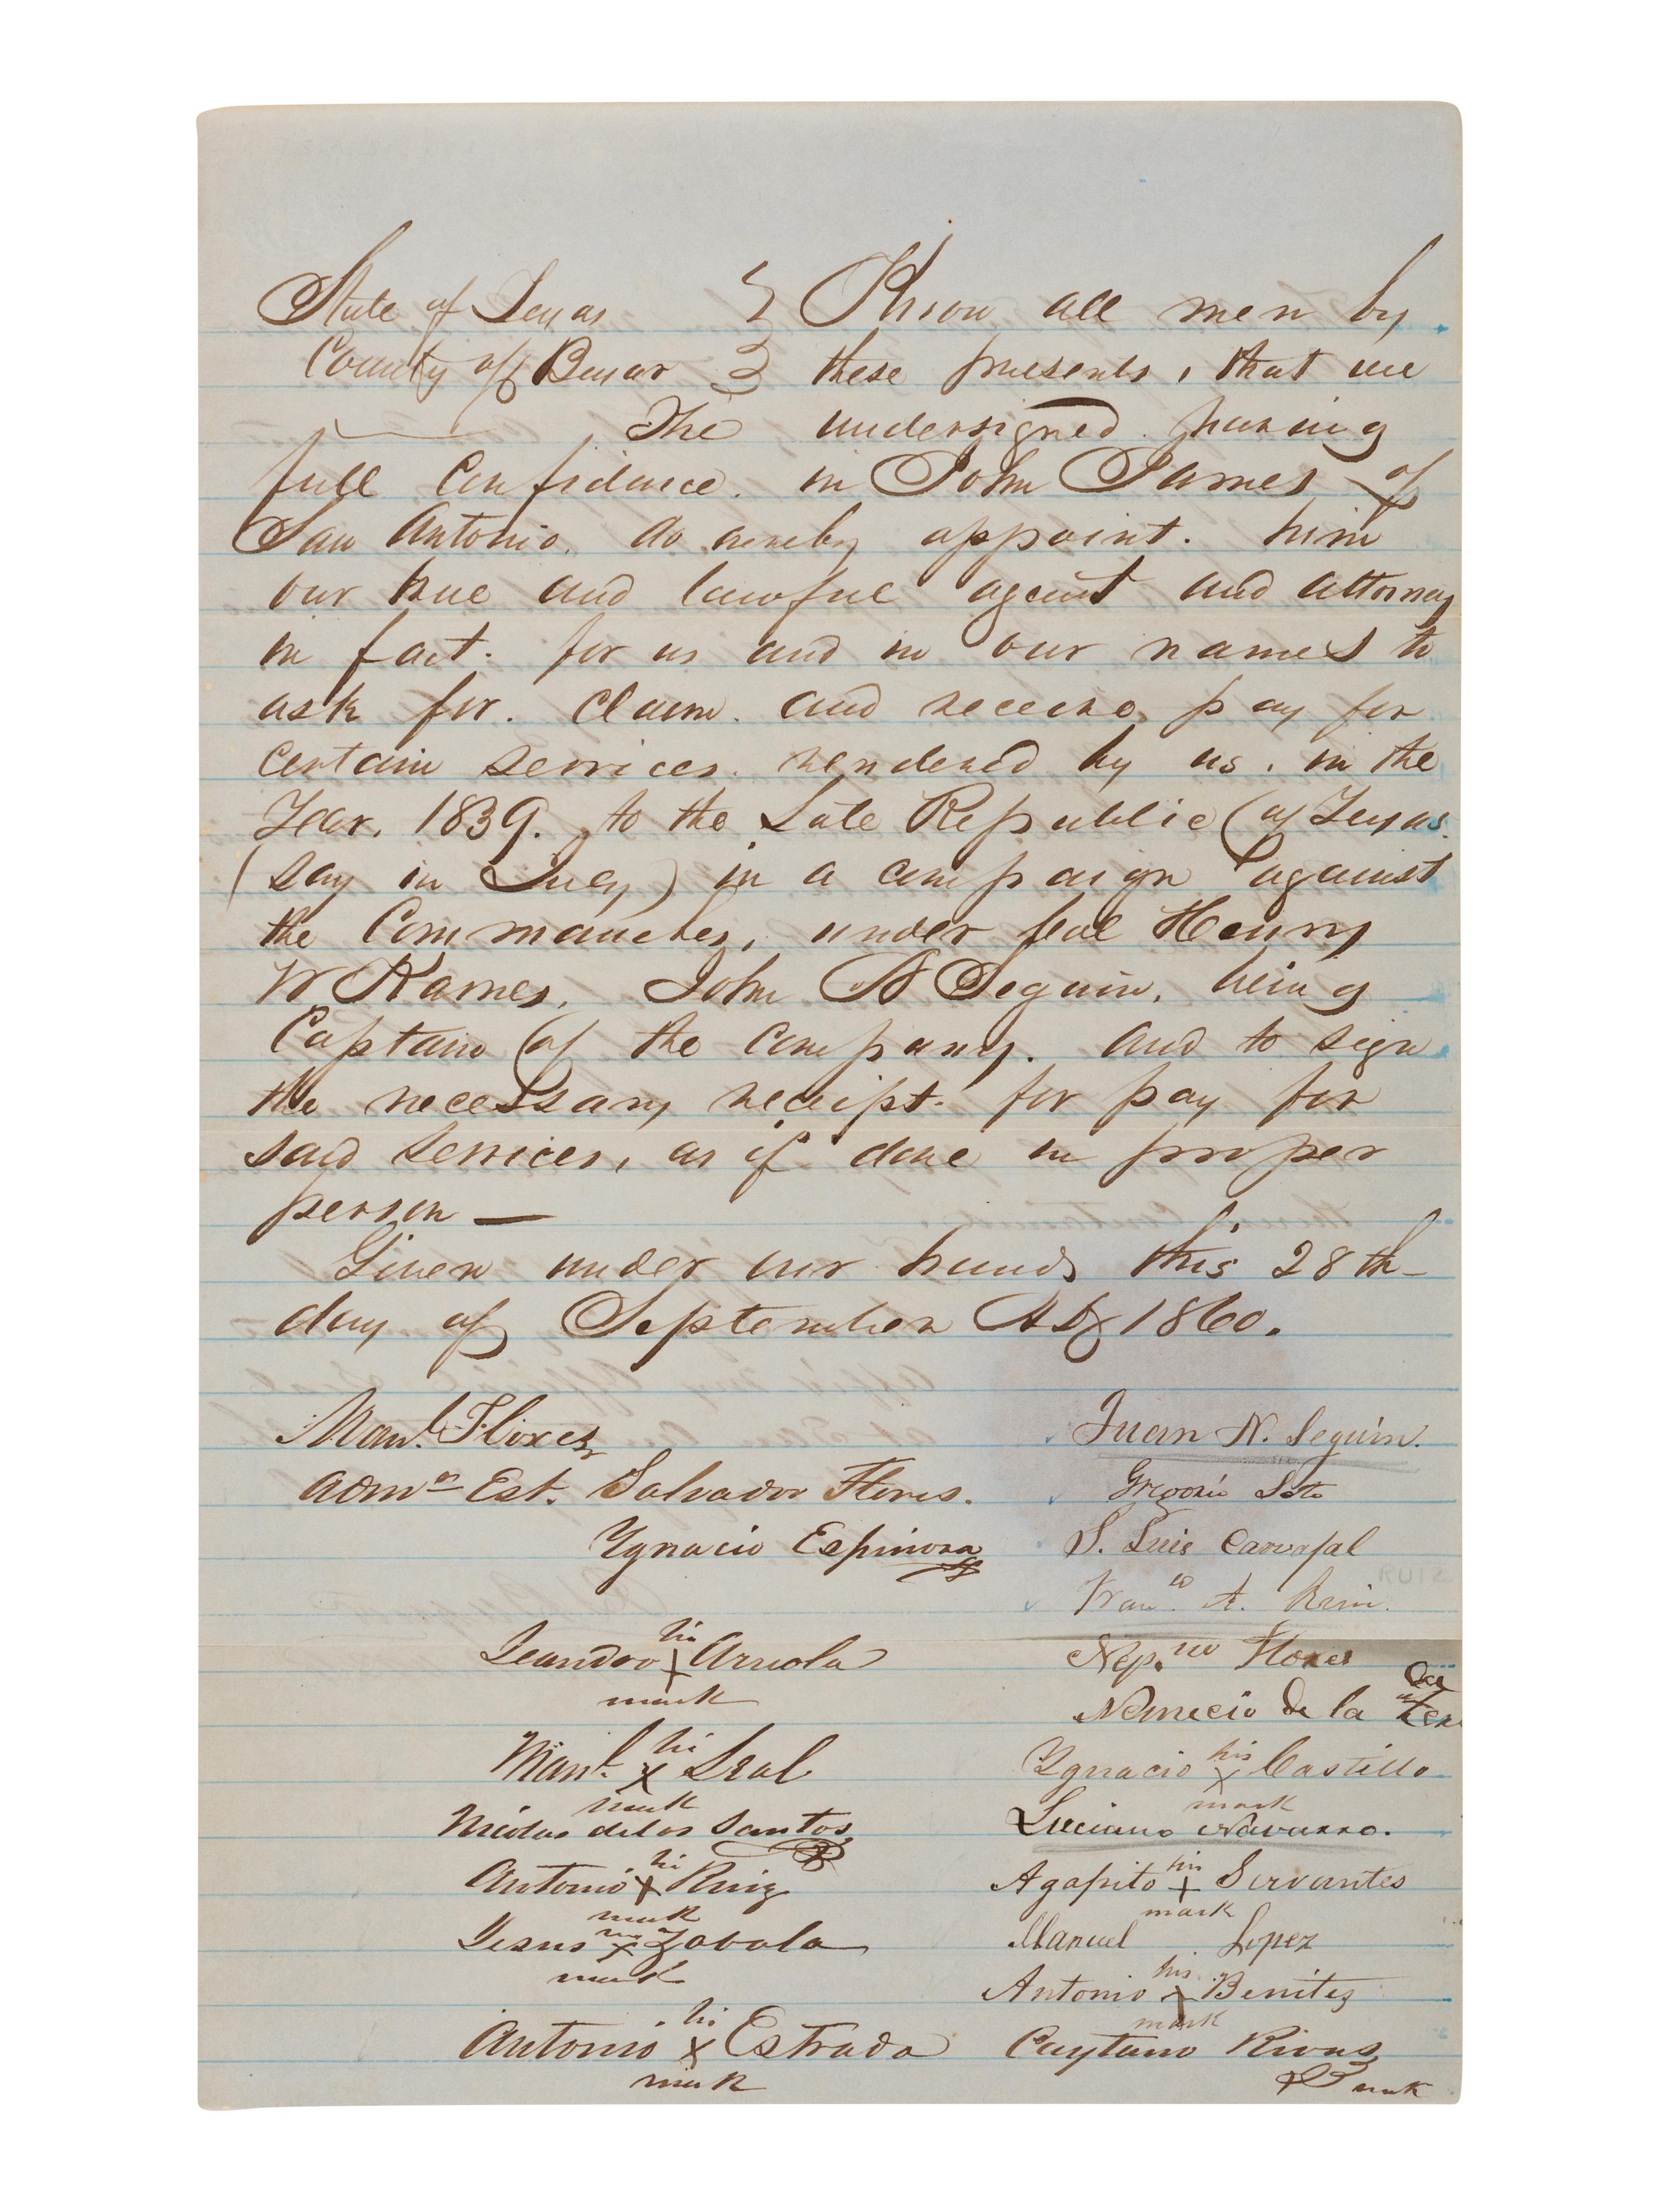 State of Texas } Know all men by
County of Bexar } these presents, that we
The undersigned having
full Confidence. in John James of
San Antonio. do hereby appoint. him
our true and lawful agent and attorney
in fact. for us and in our names to
ask for. Claim. and receive, pay for
Certain services. rendered by us. in the
Year. 1839. to the Late Republic of Texas.
(say in July) in a campaign against
the Commanches, under Henry
W Karnes, John N Seguin, being
Captain of the Company. and to sign
the necessary receipt. for pay for
said services, as if done in proper
person —
Given under our hands this 28th
day of September AD 1860.
Manl. Flores
Adm Est. Salvador Flores.
Ygnacio Espinosa
Leandro his x mark Arreola
Manl. his x mark Leal
Nicolas delos Santos
Antonio his x mark Ruiz
Jesus his x mark Zabala
Antonio his x mark Estrada
Juan N. Seguin.
Gregorio Soto
S. Luis Carvajal
Franco. A. Ruiz.
RUIZ
Nep.no Flores
Nemecio de la
Ygnacio his x mark Castillo
Luciano Navarro.
Agapito his x mark Servantes
Manuel Lopez
Antonio his x mark Benites
Caytano Rivas
mark